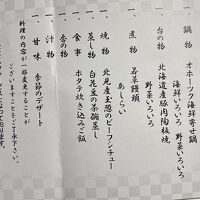 一、鍋物 オホーツク海鮮寄せ鍋
海鮮いろいろ 野菜いろいろ
一、台の物 北海道産豚肉陶板焼
野菜いろいろ
一、煮物 若草饅頭
あしらい
一、焼物 北見産玉葱のビーフシチュー
一、蒸し物 白花豆の茶碗蒸し
一、食事 ホタテ炊き込みご飯
一、香の物
一、汁物
一、甘味 季節のデザート
料理の内容が一部変更することが
ございますことをご了承下さい。